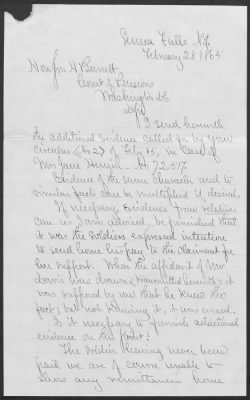 Seneca Falls, N.Y.
February 28 1865
Hon Jos. H Barrett
Comr of Pensions
Washington DC
Sir
I send herewith
the additional evidence called for by your
circular of Feby 15, in case of
Mrs Jane Herrin No 72.517.
Evidence of the same character and to
similar facts can be multiplied if desired.
If necessary, evidence from relatives
can as I am advised, be furnished that
it was the soldiers expressed intention
to send home his pay to the claimant for
her support. When the affidavit of Mr
was drawn (transmitted herewith) it
was supposed by me that he knew the
fact, but not knowing it, it was erased.
Is it necessary to furnish additional
evidence on this point?
The soldier having never been
paid we are of course unable to
show any remittance home